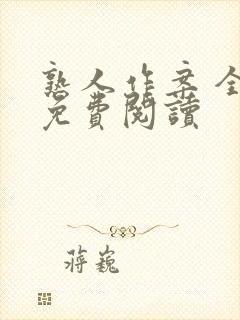 熟人作案全
免費閱讀
蔣巍